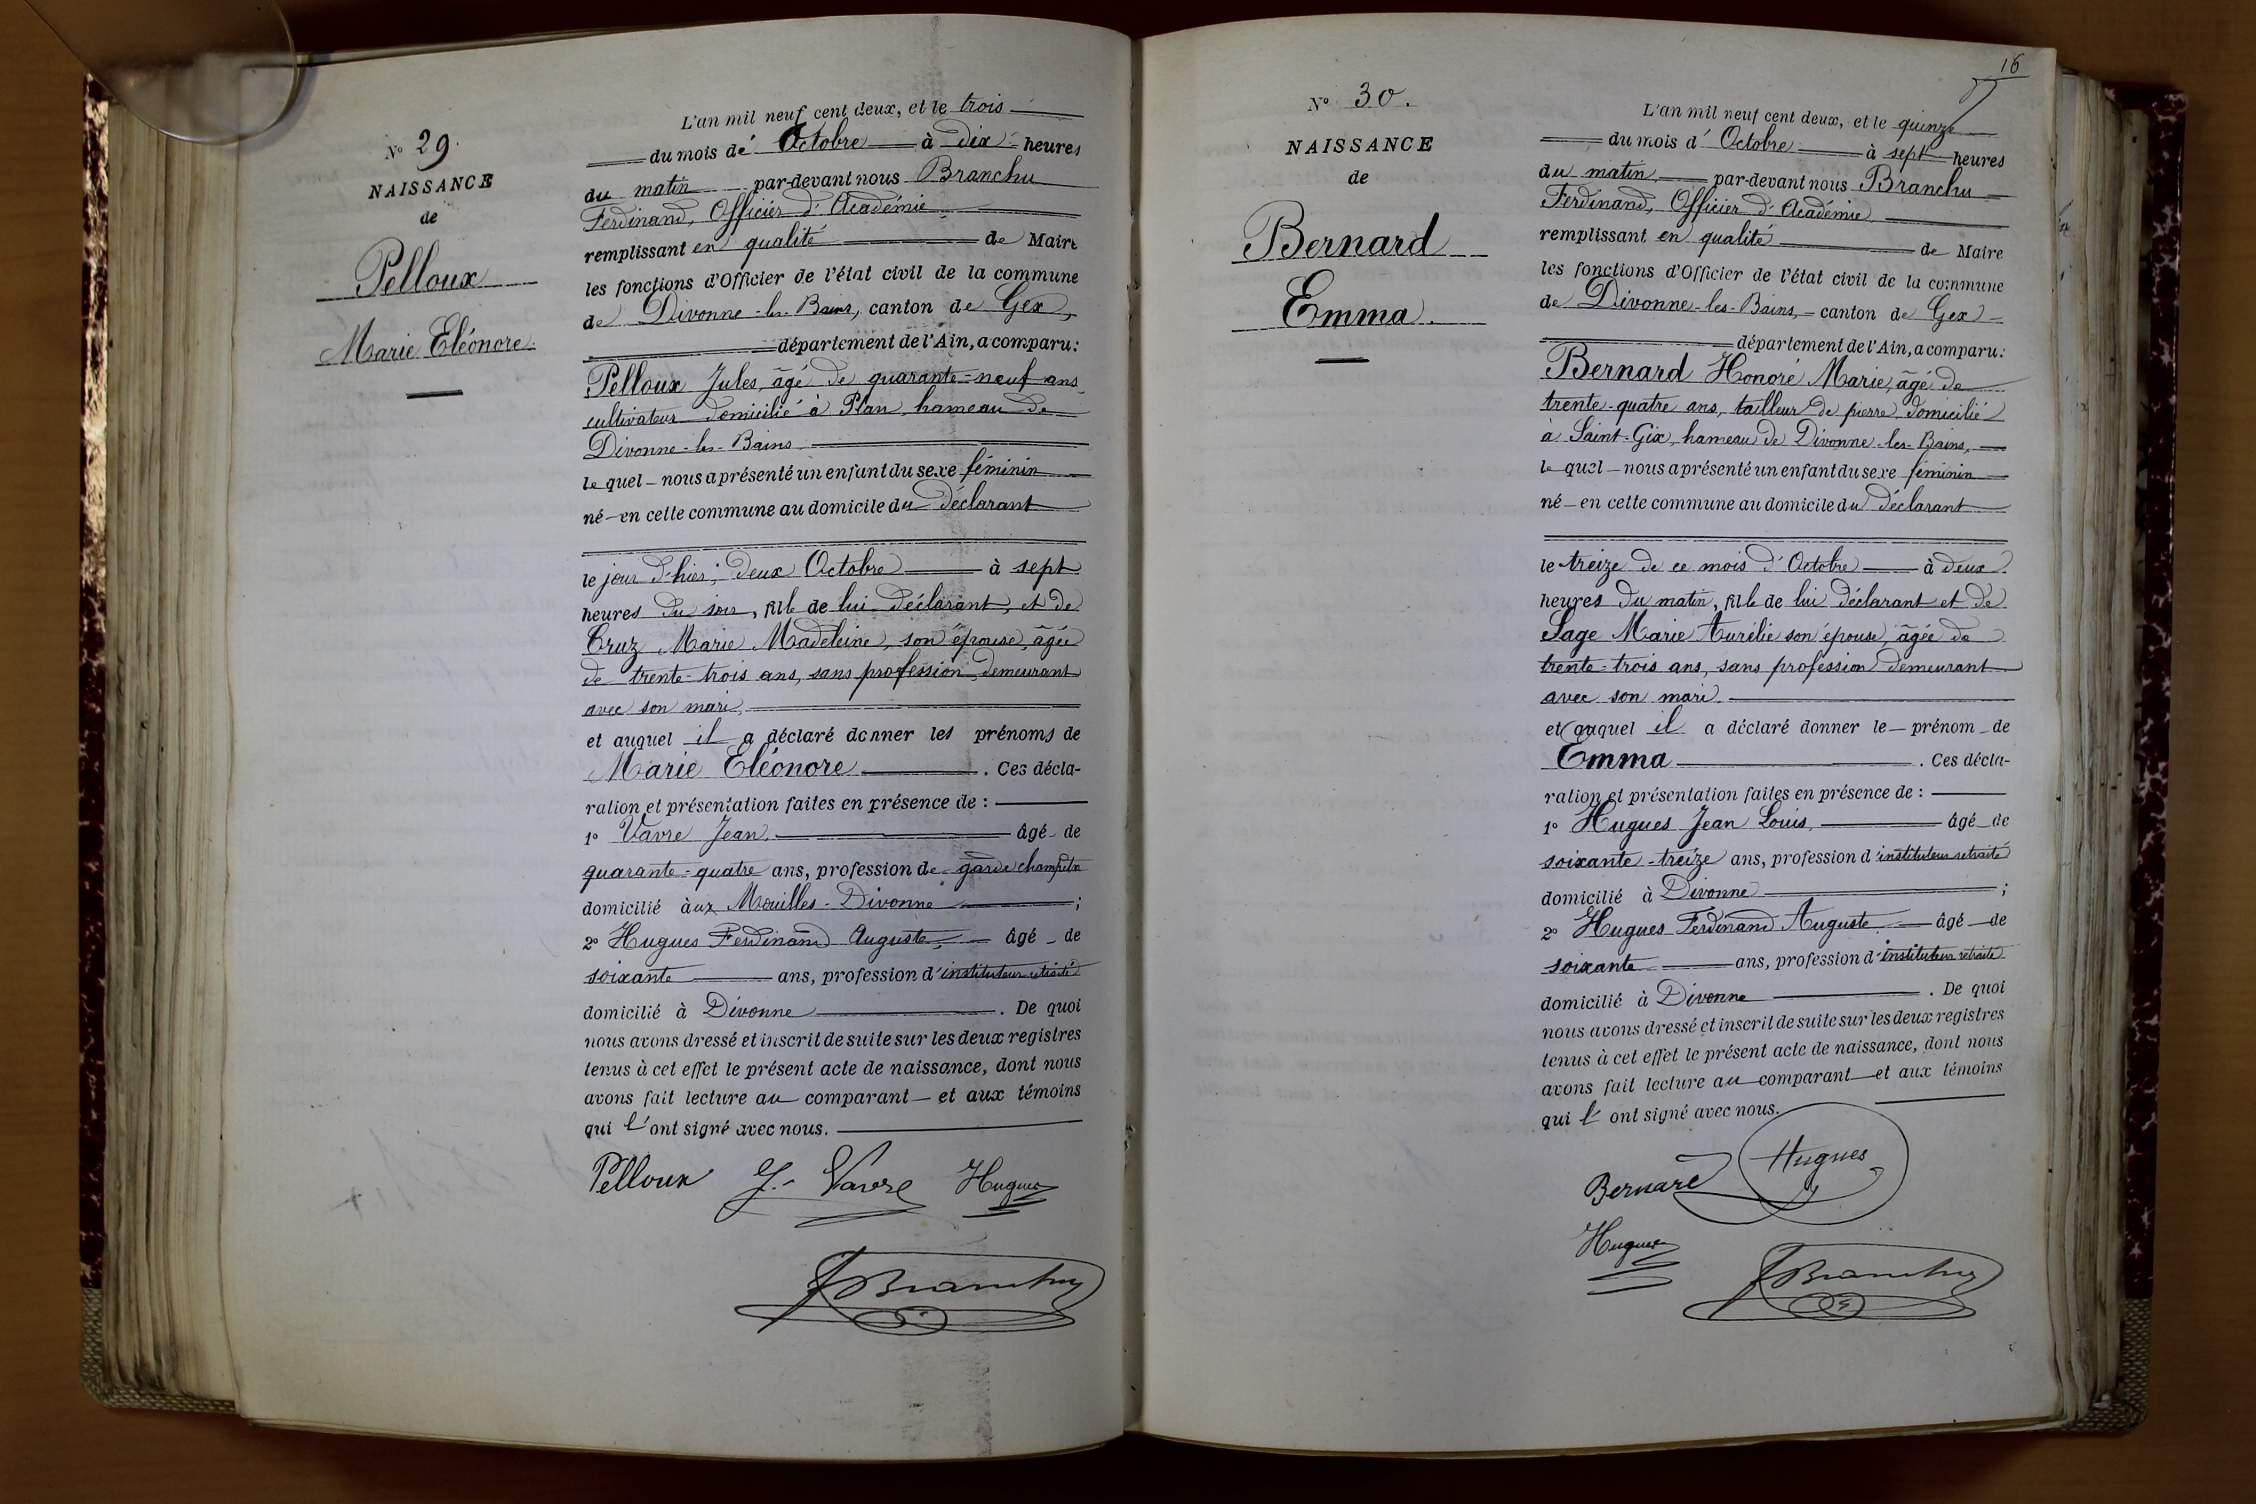 N° 29.
NAISSANCE
de
Pelloux
Marie Eléonore.
L'an mil neuf cent deux, et le trois
du mois d' Octobre à dix heures
du matin par-devant nous Branchu
Ferdinand, Officier d'Académie
remplissant en qualité de Maire
les fonctions d'Officier de l'état civil de la commune
de Divonne-les-Bains, canton de Gex,
département de l'Ain, a comparu:
Pelloux Jules, âgé de quarante-neuf ans
cultivateur domicilié à Plan hameau de
Divonne-les-Bains
lequel nous a présenté un enfant du sexe féminin
né en cette commune au domicile du déclarant
le jour d'hier, deux Octobre à sept
heures du soir, fille de lui déclarant, et de
Cruz Marie Madeleine, son épouse, âgée
de trente-trois ans, sans profession, demeurant
avec son mari,
et auquel il a déclaré donner les prénoms de
Marie Eléonore . Ces décla-
ration et présentation faites en présence de :
1° Vavre Jean, âgé de
quarante-quatre ans, profession de garde champêtre
domicilié aux Mouilles-Divonne ;
2° Hugues Ferdinand Auguste, âgé de
soixante ans, profession d'instituteur retraité
domicilié à Divonne . De quoi
nous avons dressé et inscrit de suite sur les deux registres
tenus à cet effet le présent acte de naissance, dont nous
avons fait lecture au comparant et aux témoins
qui l'ont signé avec nous.
Pelloux J. Vavre Hugues
F Branchu
16
N° 30.
NAISSANCE
de
Bernard
Emma.
L'an mil neuf cent deux, et le quinze
du mois d' Octobre à sept heures
du matin, par-devant nous Branchu
Ferdinand, Officier d'Académie
remplissant en qualité de Maire
les fonctions d'Officier de l'état civil de la commune
de Divonne-les-Bains, canton de Gex
département de l'Ain, a comparu:
Bernard Honoré Marie, âgé de
trente-quatre ans, tailleur de pierre domicilié
à Saint-Gix, hameau de Divonne-les-Bains,
lequel nous a présenté un enfant du sexe féminin
né en cette commune au domicile du déclarant
le treize de ce mois d'Octobre à deux
heures du matin, fille de lui déclarant et de
Sage Marie Aurélie son épouse, âgée de
trente-trois ans, sans profession demeurant
avec son mari.
et auquel il a déclaré donner le prénom de
Emma . Ces décla-
ration et présentation faites en présence de :
1° Hugues Jean Louis, âgé de
soixante-treize ans, profession d'instituteur retraité
domicilié à Divonne ;
2° Hugues Ferdinand Auguste âgé de
soixante ans, profession d'instituteur retraité
domicilié à Divonne . De quoi
nous avons dressé et inscrit de suite sur les deux registres
tenus à cet effet le présent acte de naissance, dont nous
avons fait lecture au comparant et aux témoins
qui l'ont signé avec nous.
Bernard Hugues
Hugues
F Branchu